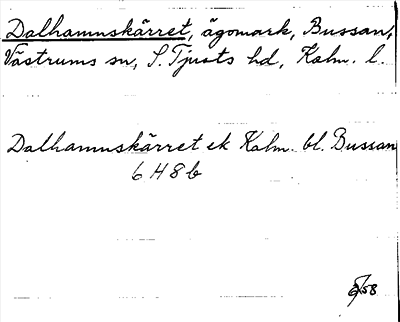 Dalhamnskärret, ägomark, Bussan,
Västrums sn, S. Tjusts hd, Kalm. l.
Dalhamnskärret ek Kalm. bl. Bussan
6 H 8 b